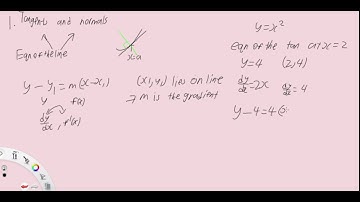 1. Tangents and normals
Eqn of the line
x=a
y - y₁ = m(x-x₁)
y f(x)
dy/dx , f'(x)
(x₁,y₁) lies on line
→ m is the gradient
y=x²
Eqn of the tan at x=2
y=4 (2,4)
dy/dx = 2x dy/dx = 4
y-4=4(